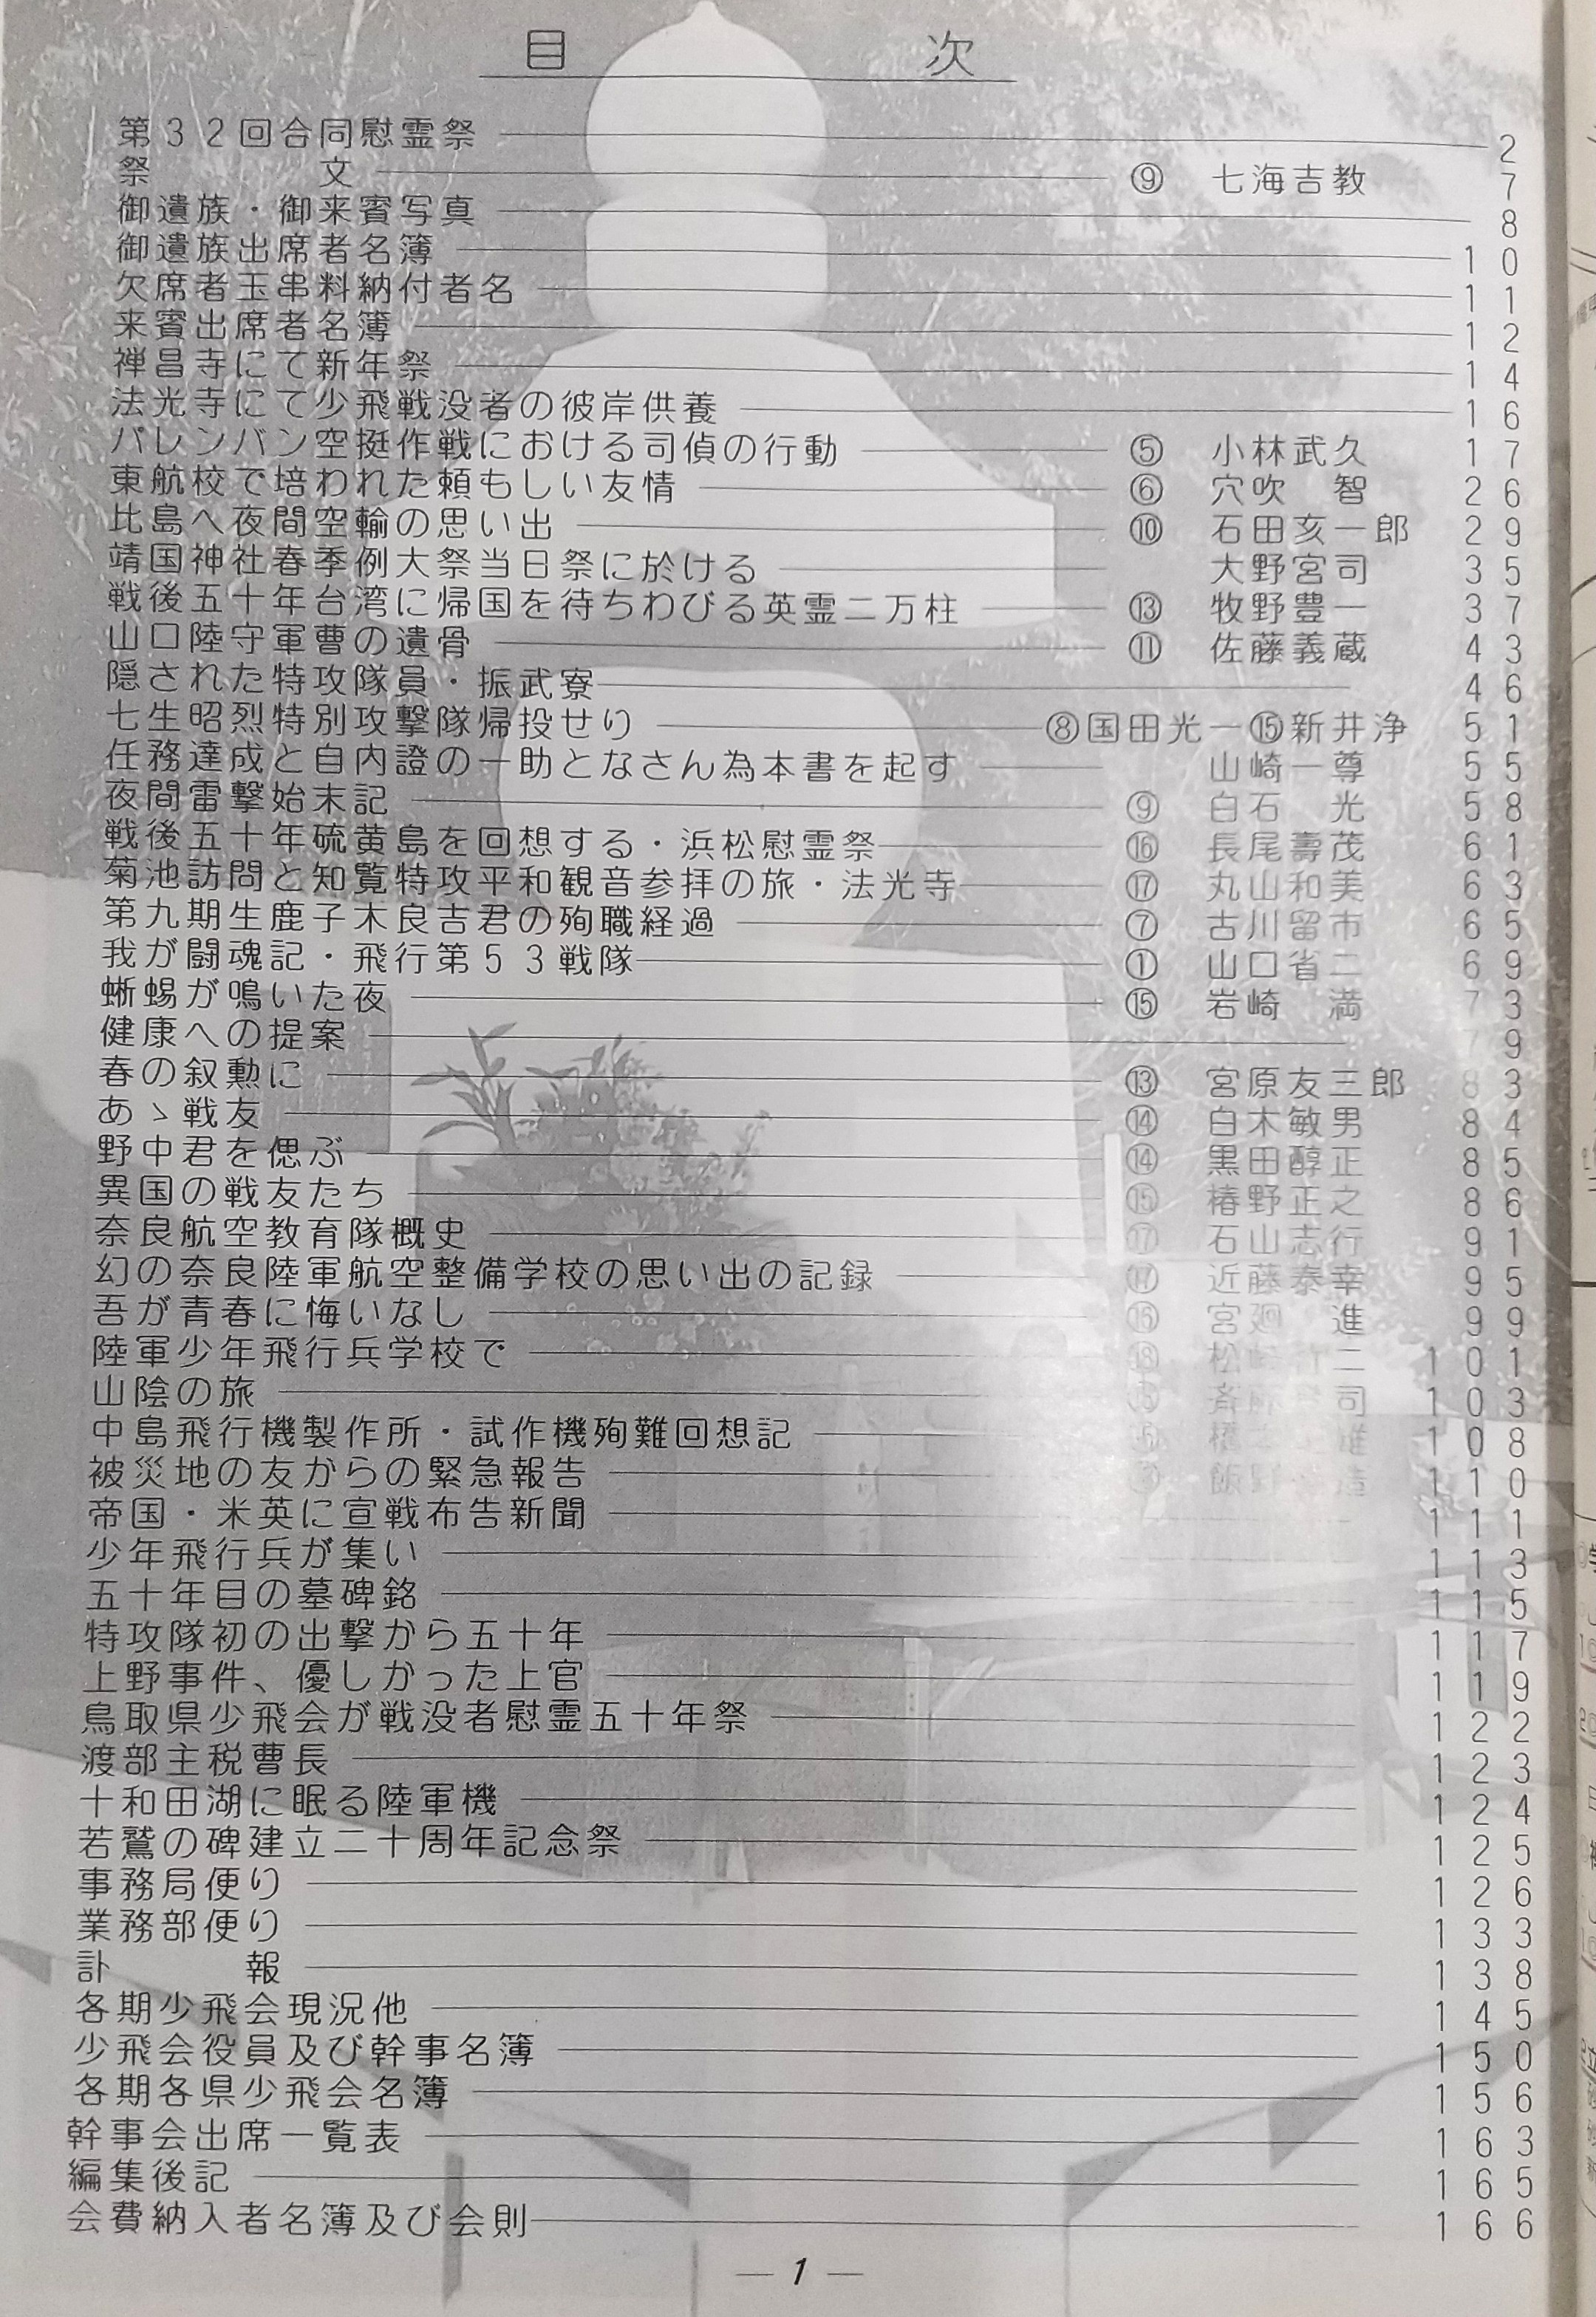 目次
第32回合同慰霊祭 2
祭文 ⑨ 七海吉教 7
御遺族・御来賓写真 8
御遺族出席者名簿 10
欠席者玉串料納付者名 11
来賓出席者名簿 12
禅昌寺にて新年祭 14
法光寺にて少飛戦没者の彼岸供養 16
パレンバン空挺作戦における司偵の行動 ⑤ 小林武久 17
東航校で培われた頼もしい友情 ⑥ 穴吹 智 26
比島へ夜間空輸の思い出 ⑩ 石田亥一郎 29
靖国神社春季例大祭当日祭に於ける 大野宮司 35
戦後五十年台湾に帰国を待ちわびる英霊二万柱 ⑬ 牧野豊一 37
山口陸守軍曹の遺骨 ⑪ 佐藤義蔵 43
隠された特攻隊員・振武寮 46
七生昭烈特別攻撃隊帰投せり ⑧国田光一⑮新井浄 51
任務達成と自内證の一助となさん為本書を起す 山崎一尊 55
夜間雷撃始末記 ⑨ 白石 光 58
戦後五十年硫黄島を回想する・浜松慰霊祭 ⑯ 長尾壽茂 61
菊池訪問と知覧特攻平和観音参拝の旅・法光寺 ⑰ 丸山和美 63
第九期生鹿子木良吉君の殉職経過 ⑦ 古川留市 65
我が闘魂記・飛行第53戦隊 ① 山口省二 69
蜥蜴が鳴いた夜 ⑮ 岩崎 満 73
健康への提案 79
春の叙勲に ⑬ 宮原友三郎 83
あゝ戦友 ⑭ 白木敏男 84
野中君を偲ぶ ⑭ 黒田醇正 85
異国の戦友たち ⑮ 椿野正之 86
奈良航空教育隊概史 ⑰ 石山志行 91
幻の奈良陸軍航空整備学校の思い出の記録 ⑰ 近藤泰幸 95
吾が青春に悔いなし ⑯ 宮廻 進 99
陸軍少年飛行兵学校で 松 二 101
山陰の旅 司 103
中島飛行機製作所・試作機殉難回想記 108
被災地の友からの緊急報告 飯野 110
帝国・米英に宣戦布告新聞 111
少年飛行兵が集い 113
五十年目の墓碑銘 115
特攻隊初の出撃から五十年 117
上野事件、優しかった上官 119
鳥取県少飛会が戦没者慰霊五十年祭 122
渡部主税曹長 123
十和田湖に眠る陸軍機 124
若鷲の碑建立二十周年記念祭 125
事務局便り 126
業務部便り 133
訃報 138
各期少飛会現況他 145
少飛会役員及び幹事名簿 150
各期各県少飛会名簿 156
幹事会出席一覧表 163
編集後記 165
会費納入者名簿及び会則 166
— 1 —